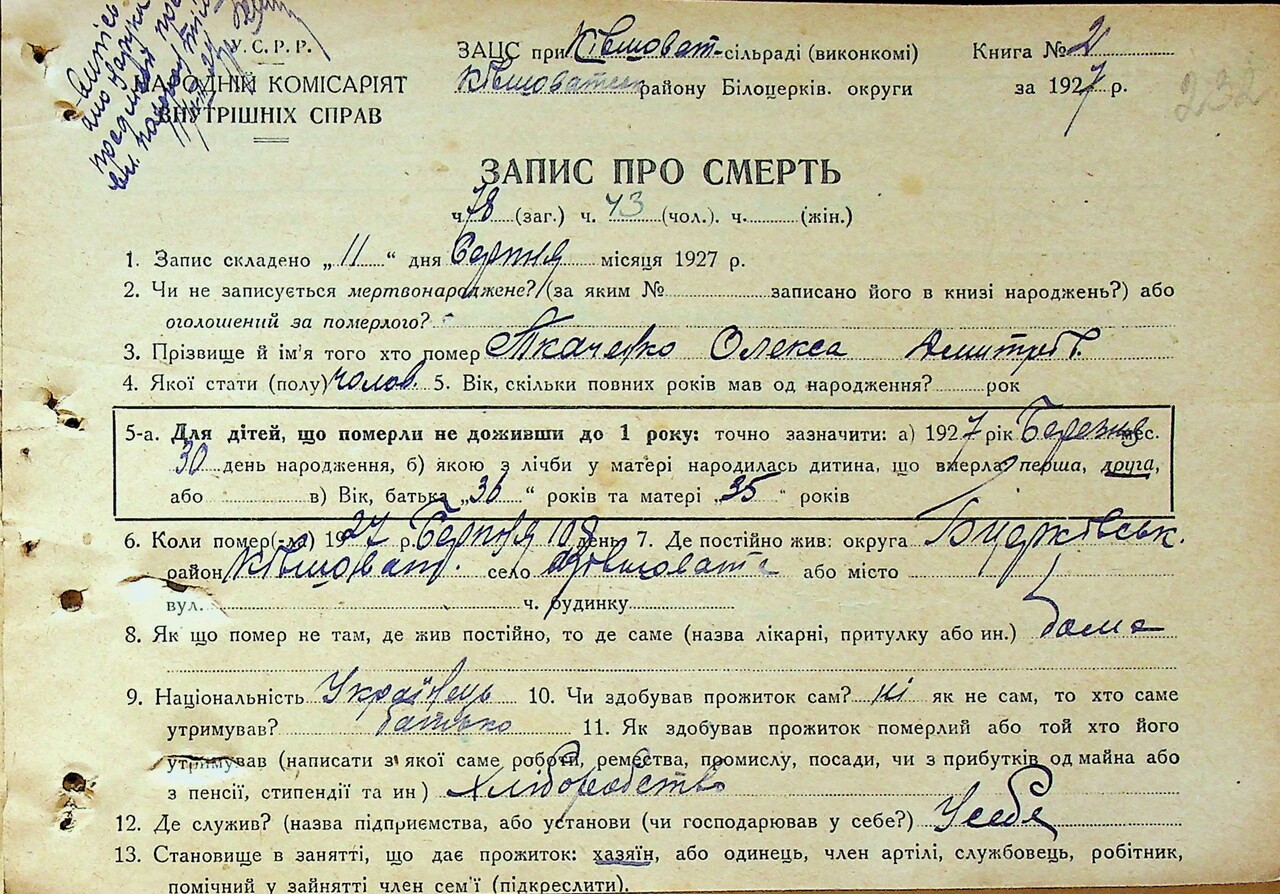 У.С.Р.Р.
НАРОДНІЙ КОМІСАРІЯТ
ВНУТРІШНІХ СПРАВ
ЗАЦС при Ківшоват-сільраді (виконкомі)
Ківшоватськ району Білоцерків. округи
Книга № 2
за 1927 р.
232
ЗАПИС ПРО СМЕРТЬ
ч. 78 (заг.) ч. 43 (чол.). ч. (жін.)
1. Запис складено „11“ дня Серпня місяця 1927 р.
2. Чи не записується мертвонароджене? (за яким № записано його в книзі народжень?) або
оголошений за померлого? -
3. Прізвище й ім'я того хто помер Ткаченко Олекса Дмитров.
4. Якої стати (полу) чолов. 5. Вік, скільки повних років мав од народження? рок
5-а. Для дітей, що померли не доживши до 1 року: точно зазначити: а) 1927 рік Березня мес.
30 день народження, б) якою з лічби у матері народилась дитина, що вмерла: перша, друга,
або в) Вік, батька „36“ років та матері „35“ років
6. Коли помер(-ла) 1927 р. Серпня 10 день 7. Де постійно жив: округа Б.церківськ.
район Ківшоват. село Ківшовата або місто
вул. ч. будинку
8. Як що помер не там, де жив постійно, то де саме (назва лікарні, притулку або ин.) дома
9. Національність Українець 10. Чи здобував прожиток сам? ні як не сам, то хто саме
утримував? батько 11. Як здобував прожиток померлий або той хто його
утримував (написати з якої саме роботи, ремества, промислу, посади, чи з прибутків од майна або
з пенсії, стипендії та ин) Хліборобство
12. Де служив? (назва підприємства, або установи (чи господарював у себе?) У себе
13. Становище в занятті, що дає прожиток: хазяїн, або одинець, член артілі, службовець, робітник,
помічний у зайнятті член сем'ї (підкреслити).